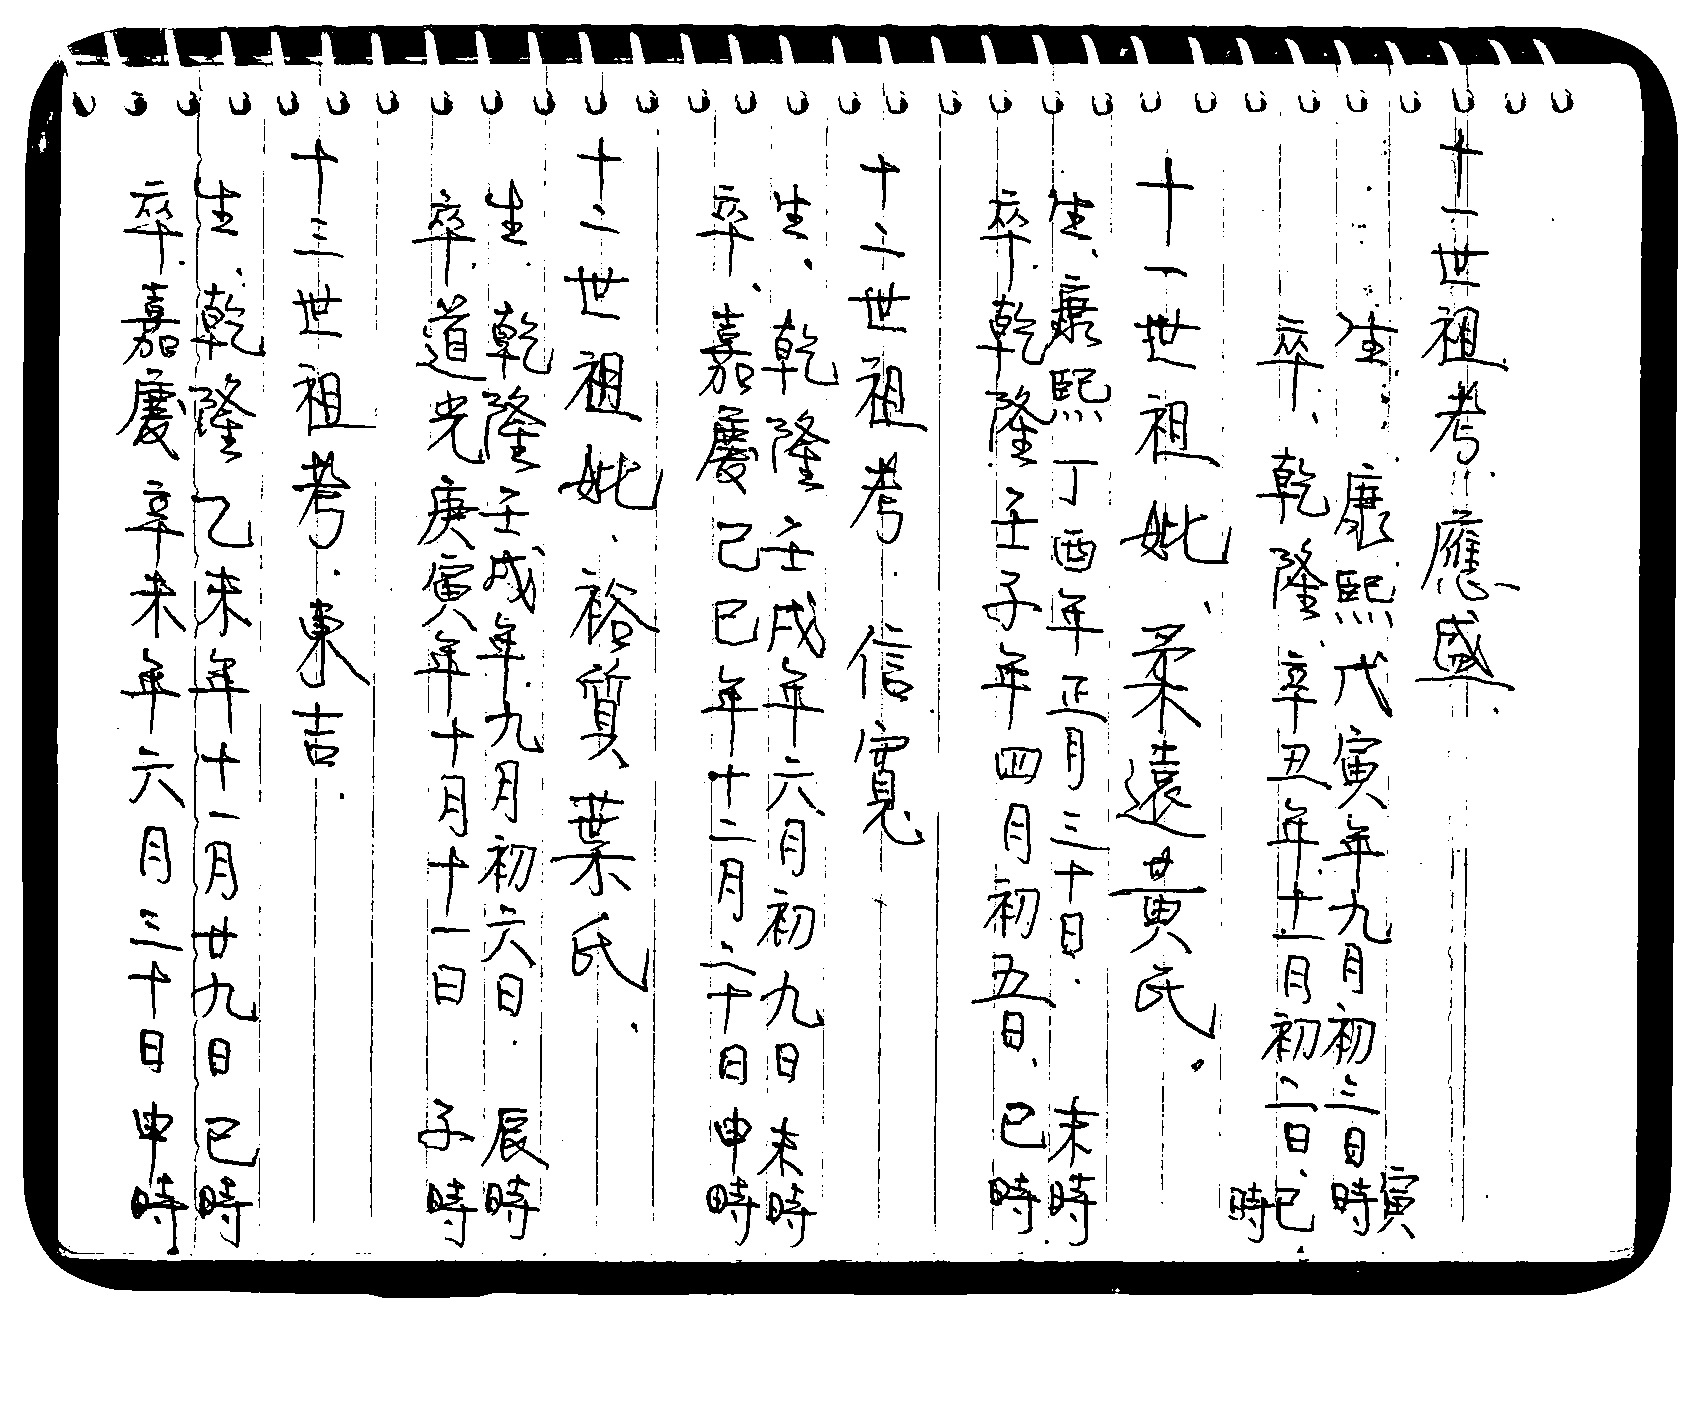 十一世祖考.應盛.
生.康熙戊寅年九月初三日寅時
卒.乾隆.辛丑年十一月初二日.巳時
十一世祖妣.柔遠黃氏.
生.康熙丁酉年正月三十日.未時
卒.乾隆壬子年四月初五日.巳時
十二世祖考.信寬.
生.乾隆壬戌年六月初九日未時
卒.嘉慶己巳年十二月二十日申時
十二世祖妣.裕質葉氏.
生.乾隆壬戌年九月初六日.辰時
卒.道光庚寅年十月十一日子時
十三世祖考.東吉.
生.乾隆乙未年十一月廿九日巳時
卒.嘉慶辛未年六月三十日申時